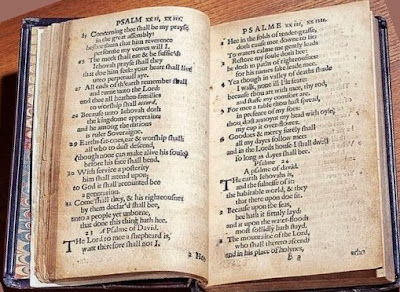 PSALM XXII, XXIII.
25 Concerning thee shall be my prayse
in the great assembly:
before them that him reverence
performe my vowes will I.
26 The meek shall eat & be suffic'd:
Iehovah prayse shall they
that doe him seek: your heart shall live
unto perpetuall aye.
27 All ends of th'earth remember shall
and turne unto the Lord:
and thee all heathen-families
to worship shall accord.
28 Because unto Iehovah doth
the kingdome appertaine:
and he among the nations
is ruler Soveraigne.
29 Earths-fat-ones, eat & worship shall
all who to dust descend,
(though none can make alive his soule)
before his face shall bend.
30 With service a posterity
him shall attend upon;
to God it shall accounted bee
a generation.
31 Come shall they, & his righteousnes
by them declar'd shall bee,
unto a people yet unborne,
that done this thing hath hee.
23 A Psalme of David.
THe Lord to mee a shepheard is,
want therefore shall not I.
2 Hee
PSALME XXIII, XXIIII.
2 Hee in the folds of tender-grasse,
doth cause mee downe to lie:
To waters calme me gently leads
3 Restore my soule doth hee:
he doth in paths of righteousnes:
for his names sake leade mee.
4 Yea though in valley of deaths shade
I walk, none ill I'le feare:
because thou art with mee, thy rod,
and staffe my comfort are.
5 For mee a table thou hast spread,
in presence of my foes:
thou dost annoynt my head with oyle,
my cup it over-flowes.
6 Goodnes & mercy surely shall
all my dayes follow mee:
and in the Lords house I shall dwell
so long as dayes shall bee.
Psalme 24
A psalme of david.
THe earth Iehovahs is,
and the fulnesse of it:
the habitable world, & they
that there upon doe sit.
2 Because upon the seas,
hee hath it firmly layd:
and it upon the water-floods
most sollidly hath stayd.
3 The mountaine of the Lord,
who shall thereto ascend?
and in his place of holynes,